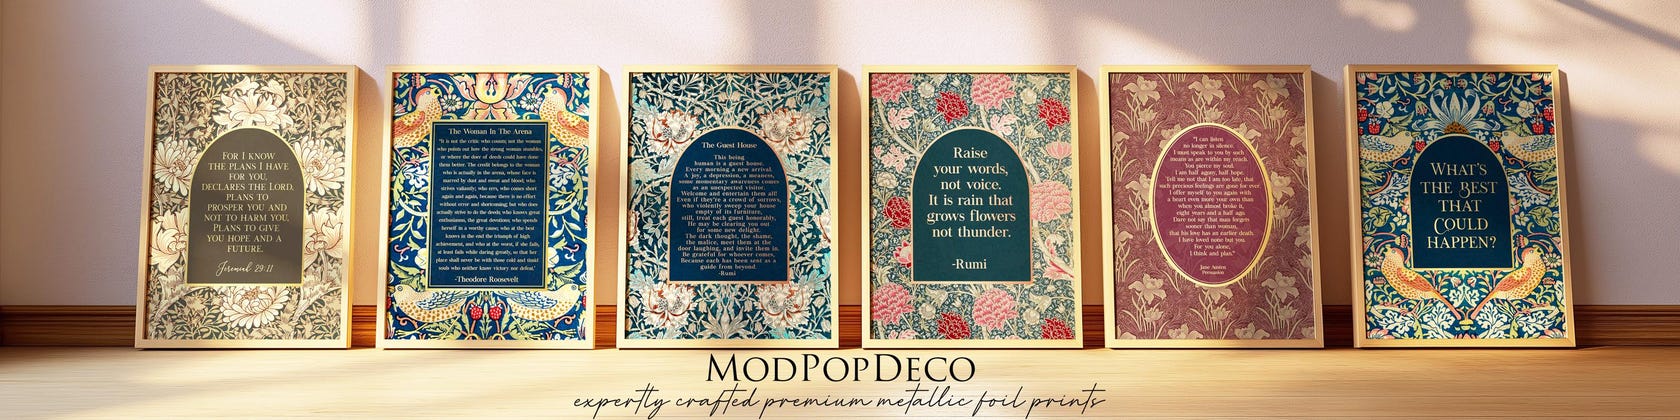 FOR I KNOW
THE PLANS I HAVE
FOR YOU,
DECLARES THE LORD,
PLANS TO
PROSPER YOU AND
NOT TO HARM YOU,
PLANS TO GIVE
YOU HOPE AND A
FUTURE.
Jeremiah 29:11
The Woman In The Arena
"It is not the critic who counts; not the woman
who points out how the strong woman stumbles,
or where the doer of deeds could have done
them better. The credit belongs to the woman
who is actually in the arena, whose face is
marred by dust and sweat and blood; who
strives valiantly; who errs, who comes short
again and again, because there is no effort
without error and shortcoming; but who does
actually strive to do the deeds; who knows great
enthusiasms, the great devotions; who spends
herself in a worthy cause; who at the best
knows in the end the triumph of high
achievement, and who at the worst, if she fails,
at least fails while daring greatly, so that her
place shall never be with those cold and timid
souls who neither know victory nor defeat."
-Theodore Roosevelt
The Guest House
This being
human is a guest house.
Every morning a new arrival.
A joy, a depression, a meaness,
some momentary awareness comes
as an unexpected visitor.
Welcome and entertain them all!
Even if they're a crowd of sorrows,
who violently sweep your house
empty of its furniture,
still, treat each guest honorably,
He may be clearing you out
for some new delight.
The dark thought, the shame,
the malice, meet them at the
door laughing, and invite them in.
Be grateful for whoever comes,
Because each has been sent as a
guide from beyond.
-Rumi
Raise
your words,
not voice.
It is rain that
grows flowers
not thunder.
-Rumi
"I can listen
no longer in silence.
I must speak to you by such
means as are within my reach.
You pierce my soul.
I am half agony, half hope.
Tell me not that I am too late, that
such precious feelings are gone for ever.
I offer myself to you again with
a heart even more your own than
when you almost broke it,
eight years and a half ago.
Dare not say that man forgets
sooner than woman,
that his love has an earlier death.
I have loved none but you.
For you alone,
I think and plan."
Jane Austen
Persuasion
WHAT'S
THE BEST
THAT
COULD
HAPPEN?
MODPOPDECO
expertly crafted premium metallic foil prints